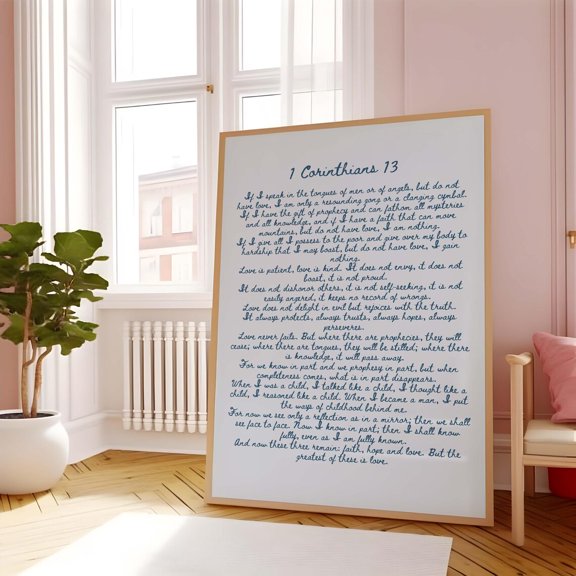 1 Corinthians 13
If I speak in the tongues of men or of angels, but do not
have love, I am only a resounding gong or a clanging cymbal.
If I have the gift of prophecy and can fathom all mysteries
and all knowledge, and if I have a faith that can move
mountains, but do not have love, I am nothing.
If I give all I possess to the poor and give over my body to
hardship that I may boast, but do not have love, I gain
nothing.
Love is patient, love is kind. It does not envy, it does not
boast, it is not proud.
It does not dishonor others, it is not self-seeking, it is not
easily angered, it keeps no record of wrongs.
Love does not delight in evil but rejoices with the truth.
It always protects, always trusts, always hopes, always
perseveres.
Love never fails. But where there are prophecies, they will
cease; where there are tongues, they will be stilled; where there
is knowledge, it will pass away.
For we know in part and we prophesy in part, but when
completeness comes, what is in part disappears.
When I was a child, I talked like a child, I thought like a
child, I reasoned like a child. When I became a man, I put
the ways of childhood behind me.
For now we see only a reflection as in a mirror; then we shall
see face to face. Now I know in part; then I shall know
fully, even as I am fully known.
And now these three remain: faith, hope and love. But the
greatest of these is love.